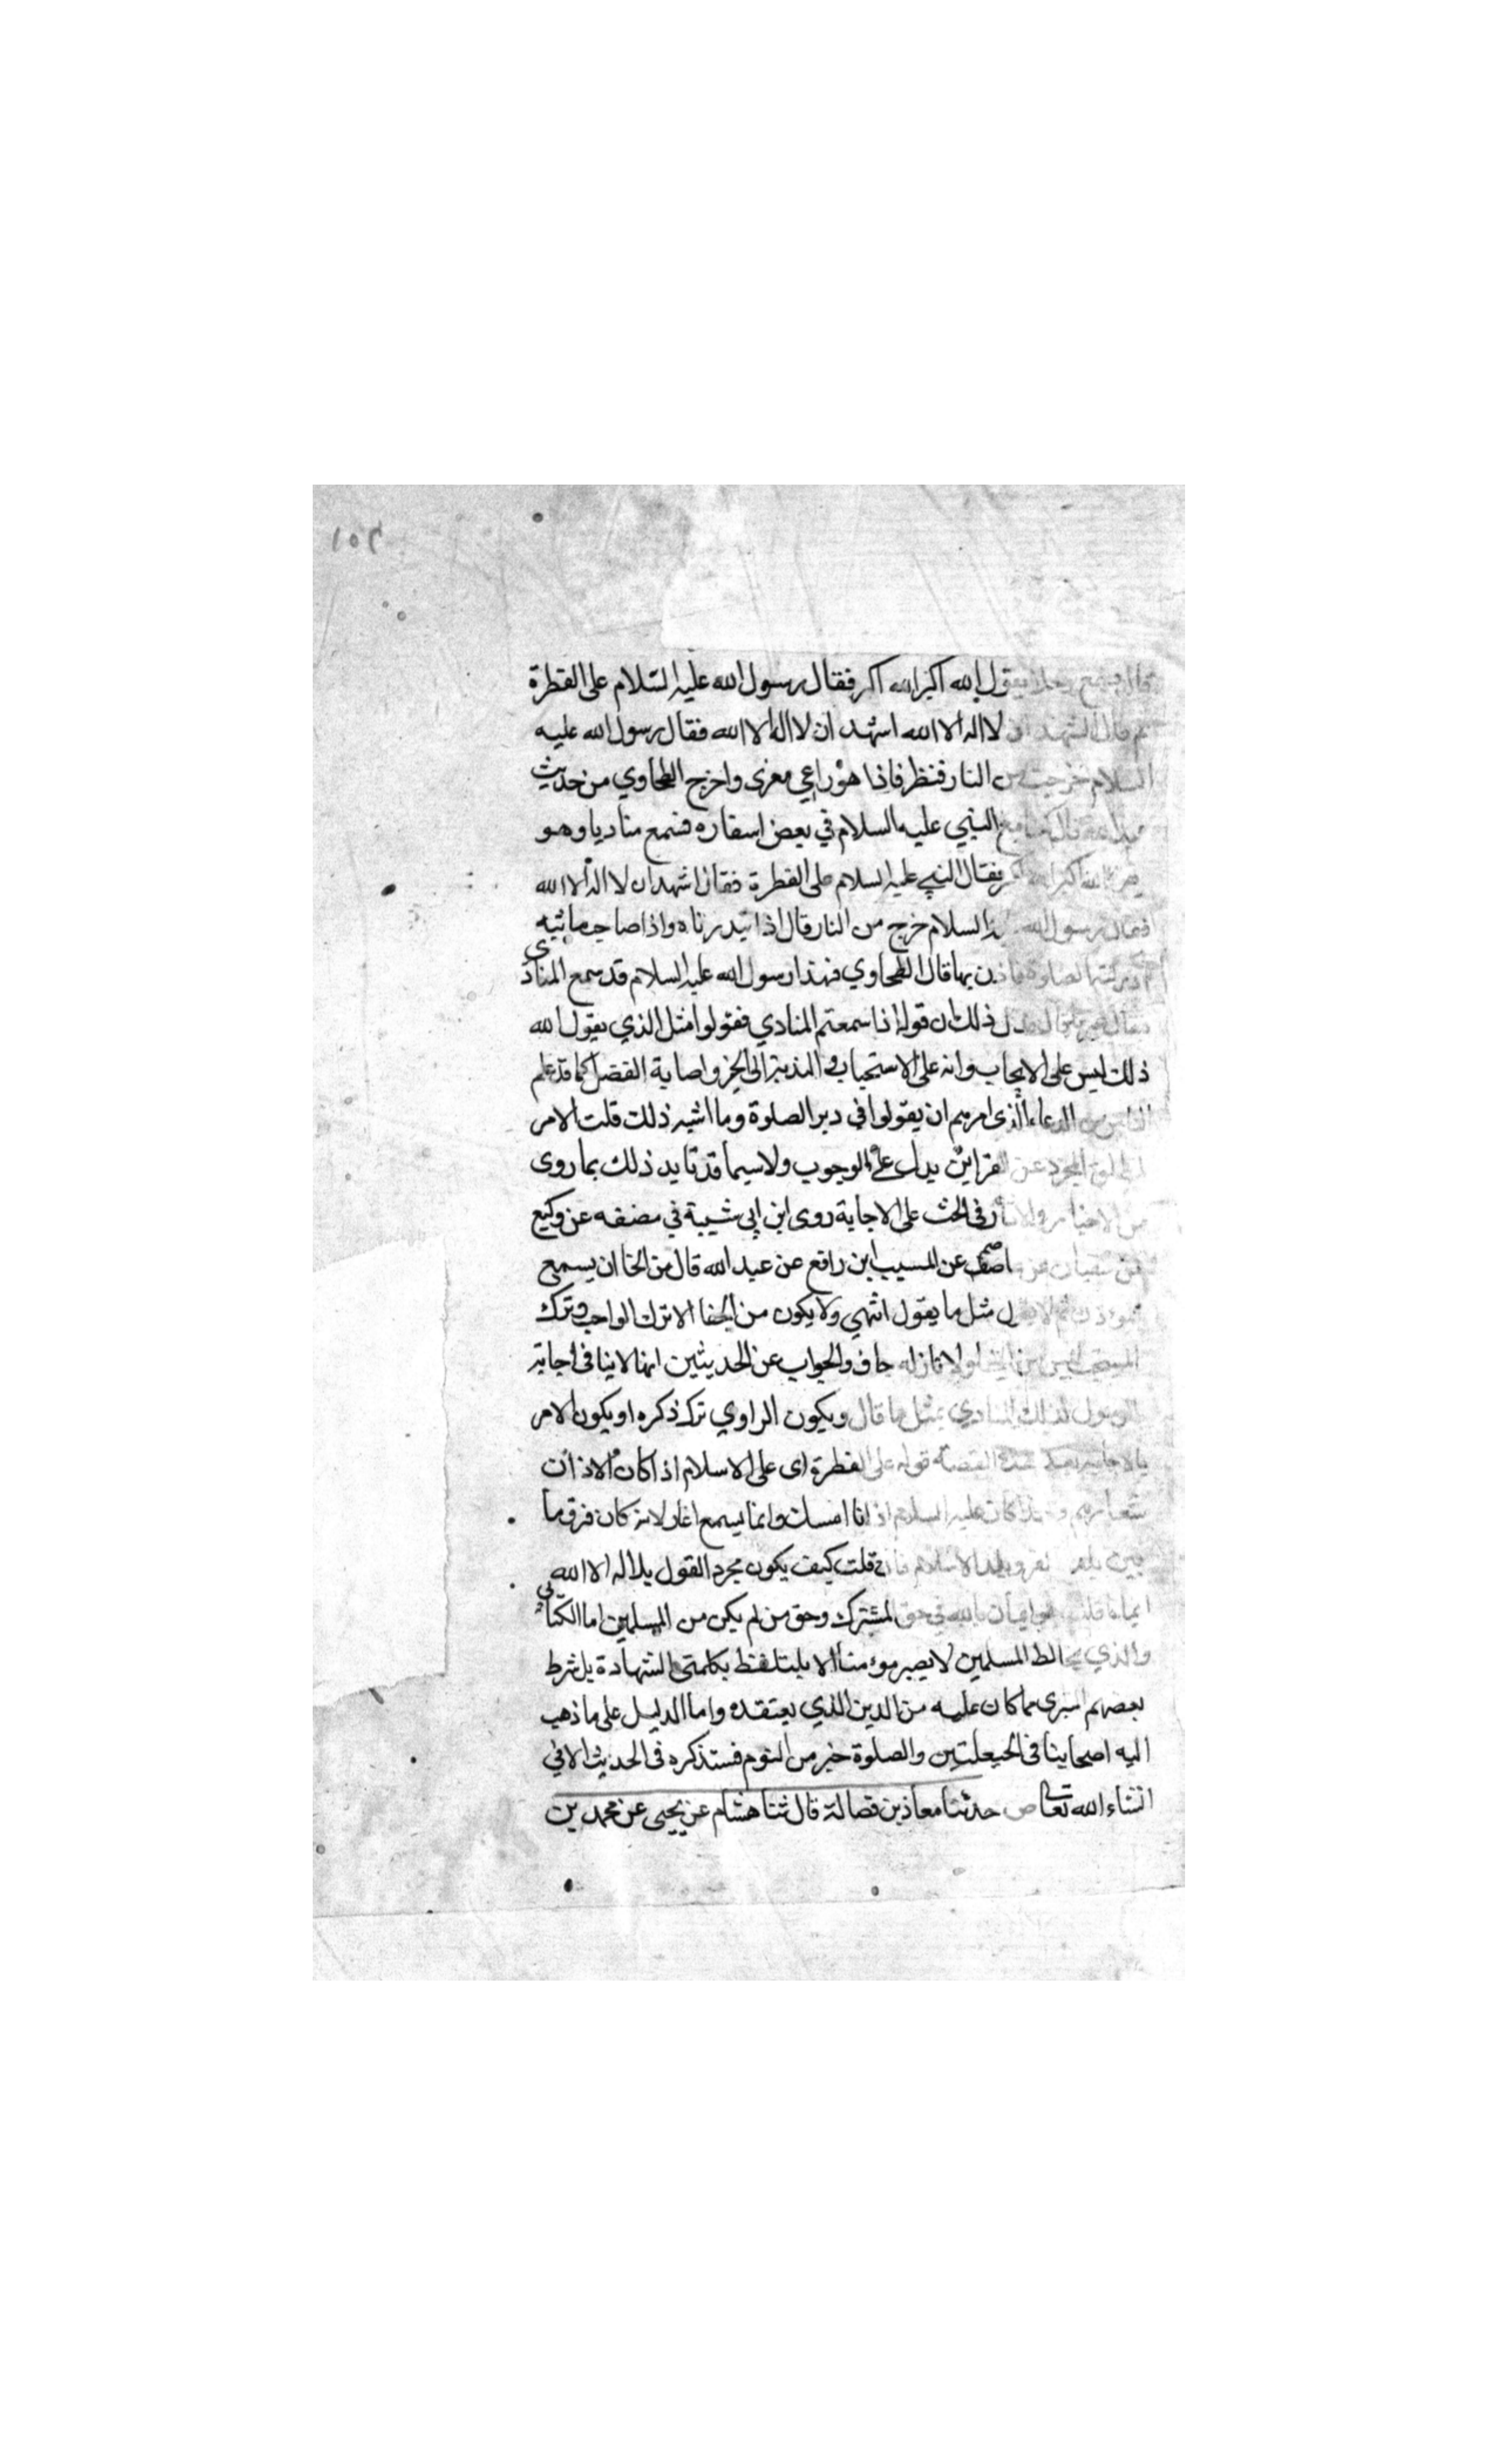 ١٥٢
يقول الله اكبر الله اكبر فقال رسول الله عليه السّلام على الفطرة
ثم قال اشهد ان لا اله الا الله اشهد ان لا اله الا الله فقال رسول الله عليه
السلام خرجت من النار فنظر فاذا هو راعي معزى واخرج الطحاوي من حديث
عبد الله قال كنا مع النبي عليه السلام في بعض اسفاره فسمع مناديا وهو
الله اكبر الله اكبر فقال النبي عليه السلام على الفطرة فقال اشهد ان لا اله الا الله
فقال رسول الله عليه السلام خرج من النار قال فاذا صاحب ماشية
الصلوة فاذن بها قال الطحاوي فهذا رسول الله عليه السلام قد سمع المنادى
فقال غير ما قال فدل ذلك ان قوله اذا سمعتم المنادي فقولوا مثل الذي يقول الله
ذلك ليس على الايجاب وانه على الاستحباب والندبة الى الخير واصابة الفضل كما قد علم
الناس من الدعاء الذي امرهم ان يقولوا في دبر الصلوة وما اشبه ذلك قلت الامر
المجرد عن القراين يدل على الوجوب ولا سيما قد تايد ذلك بما روى
من الاخبار والاثار في الحث على الاجابة روى ابن ابي شيبة في مصنفه عن وكيع
عن سفيان عن عاصم عن المسيب ابن رافع عن عبد الله قال من الجفا ان يسمع
المؤذن ثم لا يقول مثل ما يقول انتهي ولا يكون من الجفا الا ترك الواجب وترك
المستحب ليس من الجفا ولا تاركه جاف والجواب عن الحديثين انهما لا ينافى اجابة
الرسول لذلك المنادي بمثل ما قال ويكون الراوي ترك ذكره او يكون الامر
بالاجابة بعد هذه القصة قوله على الفطرة اى على الاسلام اذ اكان الاذان
شعارهم ولهذا كان عليه السلام اذا اذانا امسك وانما يسمع اغار لانه كان فرق ما
بين بلد الكفر وبلد الاسلام فان قلت كيف يكون مجرد القول بلا اله الا الله
ايمانا قلت هو ايمان بالله في حق المشرك وحق من لم يكن من المسلمين اما الكتابى
والذي يخالط المسلمين لا يصير مؤمنا الا بلتلفظ بكلمتى الشهادة بل شرط
بعضهم التبرى مما كان عليه من الدين الذي يعتقده واما الدليل على ما ذهب
اليه اصحابنا في الحيعلتين والصلوة خير من النوم فسنذكره فى الحديث الاتي
انشاء الله تعالى ص حدثنا معاذ بن فضالة قال ثنا هشام عن يحيى عن محمد بن